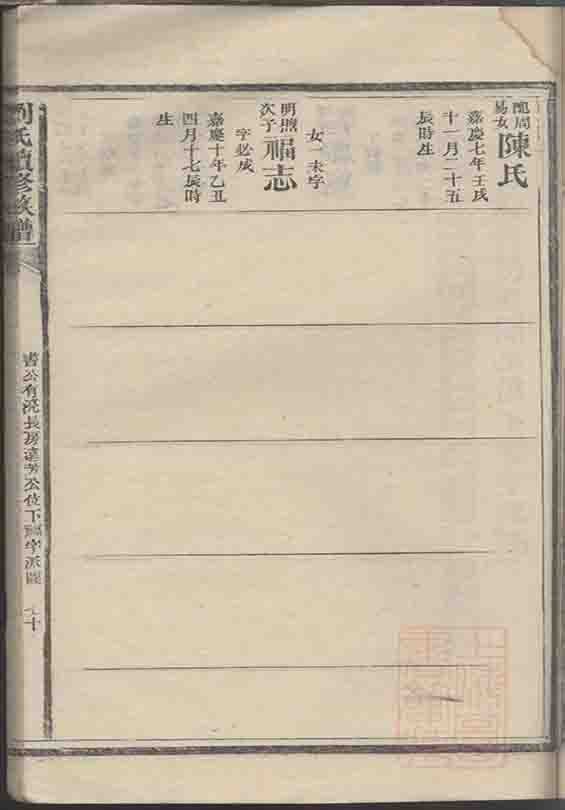 醜周易女陳氏
嘉慶七年壬戌
十一月二十五
辰時生
女一未字
明照次子福志
字必成
嘉慶十年乙丑
四月十七辰時
生
劉氏續修族譜
書公有
長房達芳公位下福字派圖
九十